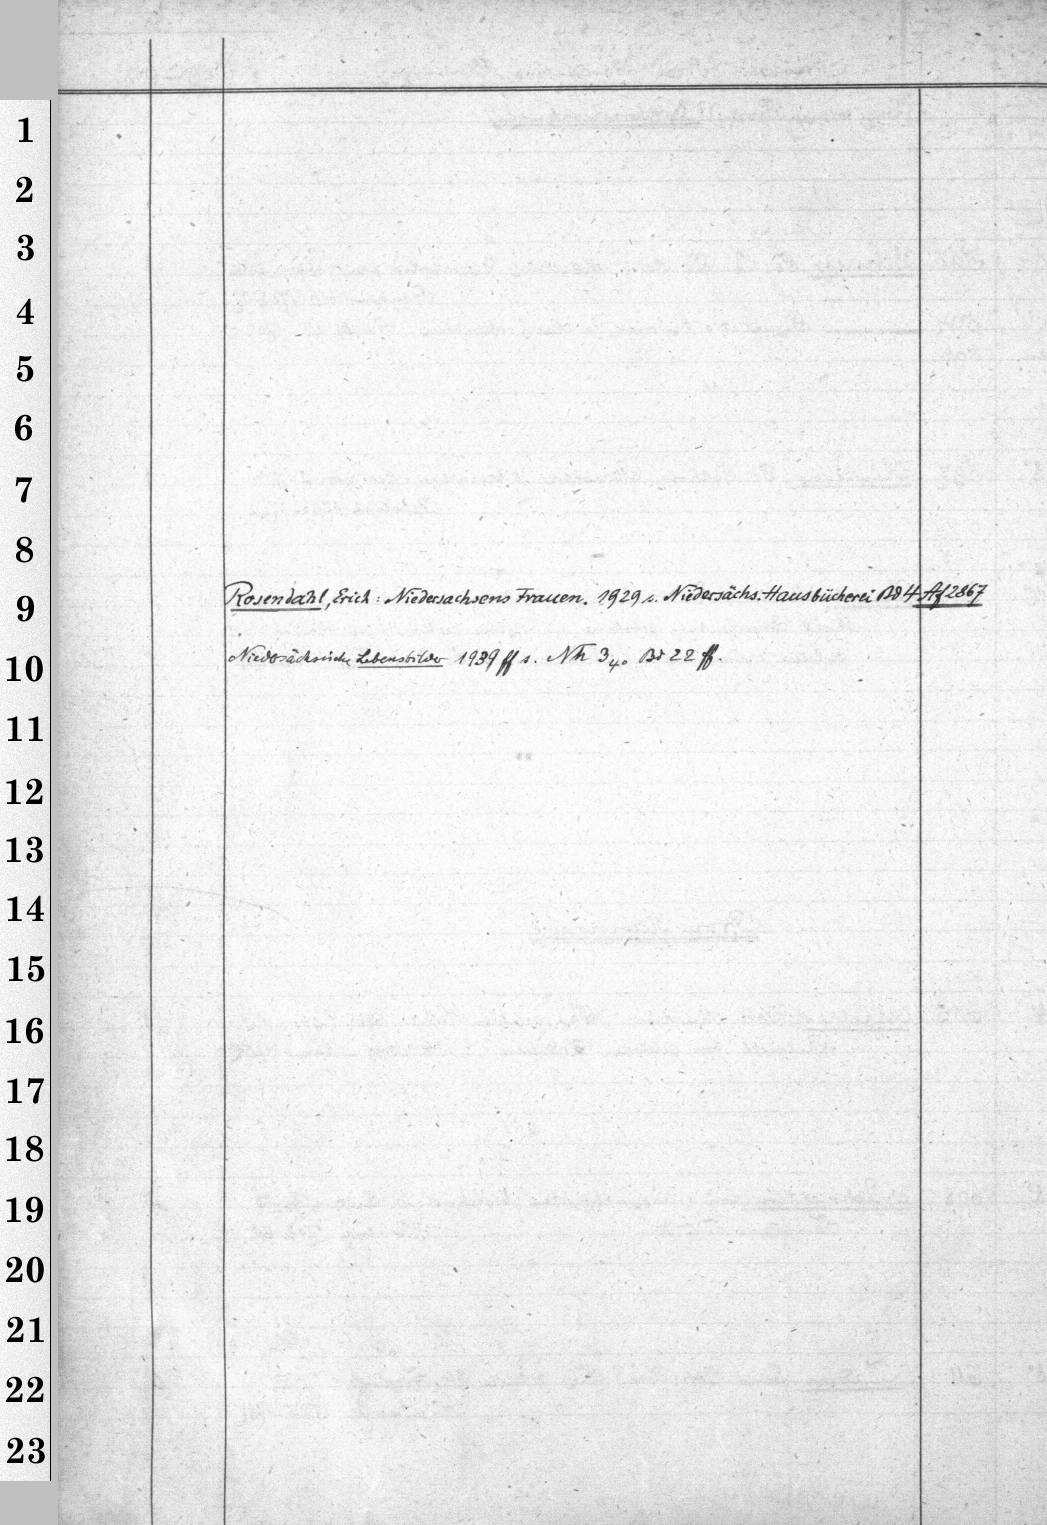 1
2
3
4
5
6
7
8
9
Rosendahl, Erich: Niedersachsens Frauen. 1929 s. Niedersächs. Hausbücherei Bd 4 Af 2867
10
Niedersächsische Lebensbilder 1939 ff s. Nh 340 Bd 22 ff.
11
12
13
14
15
16
17
18
19
20
21
22
23